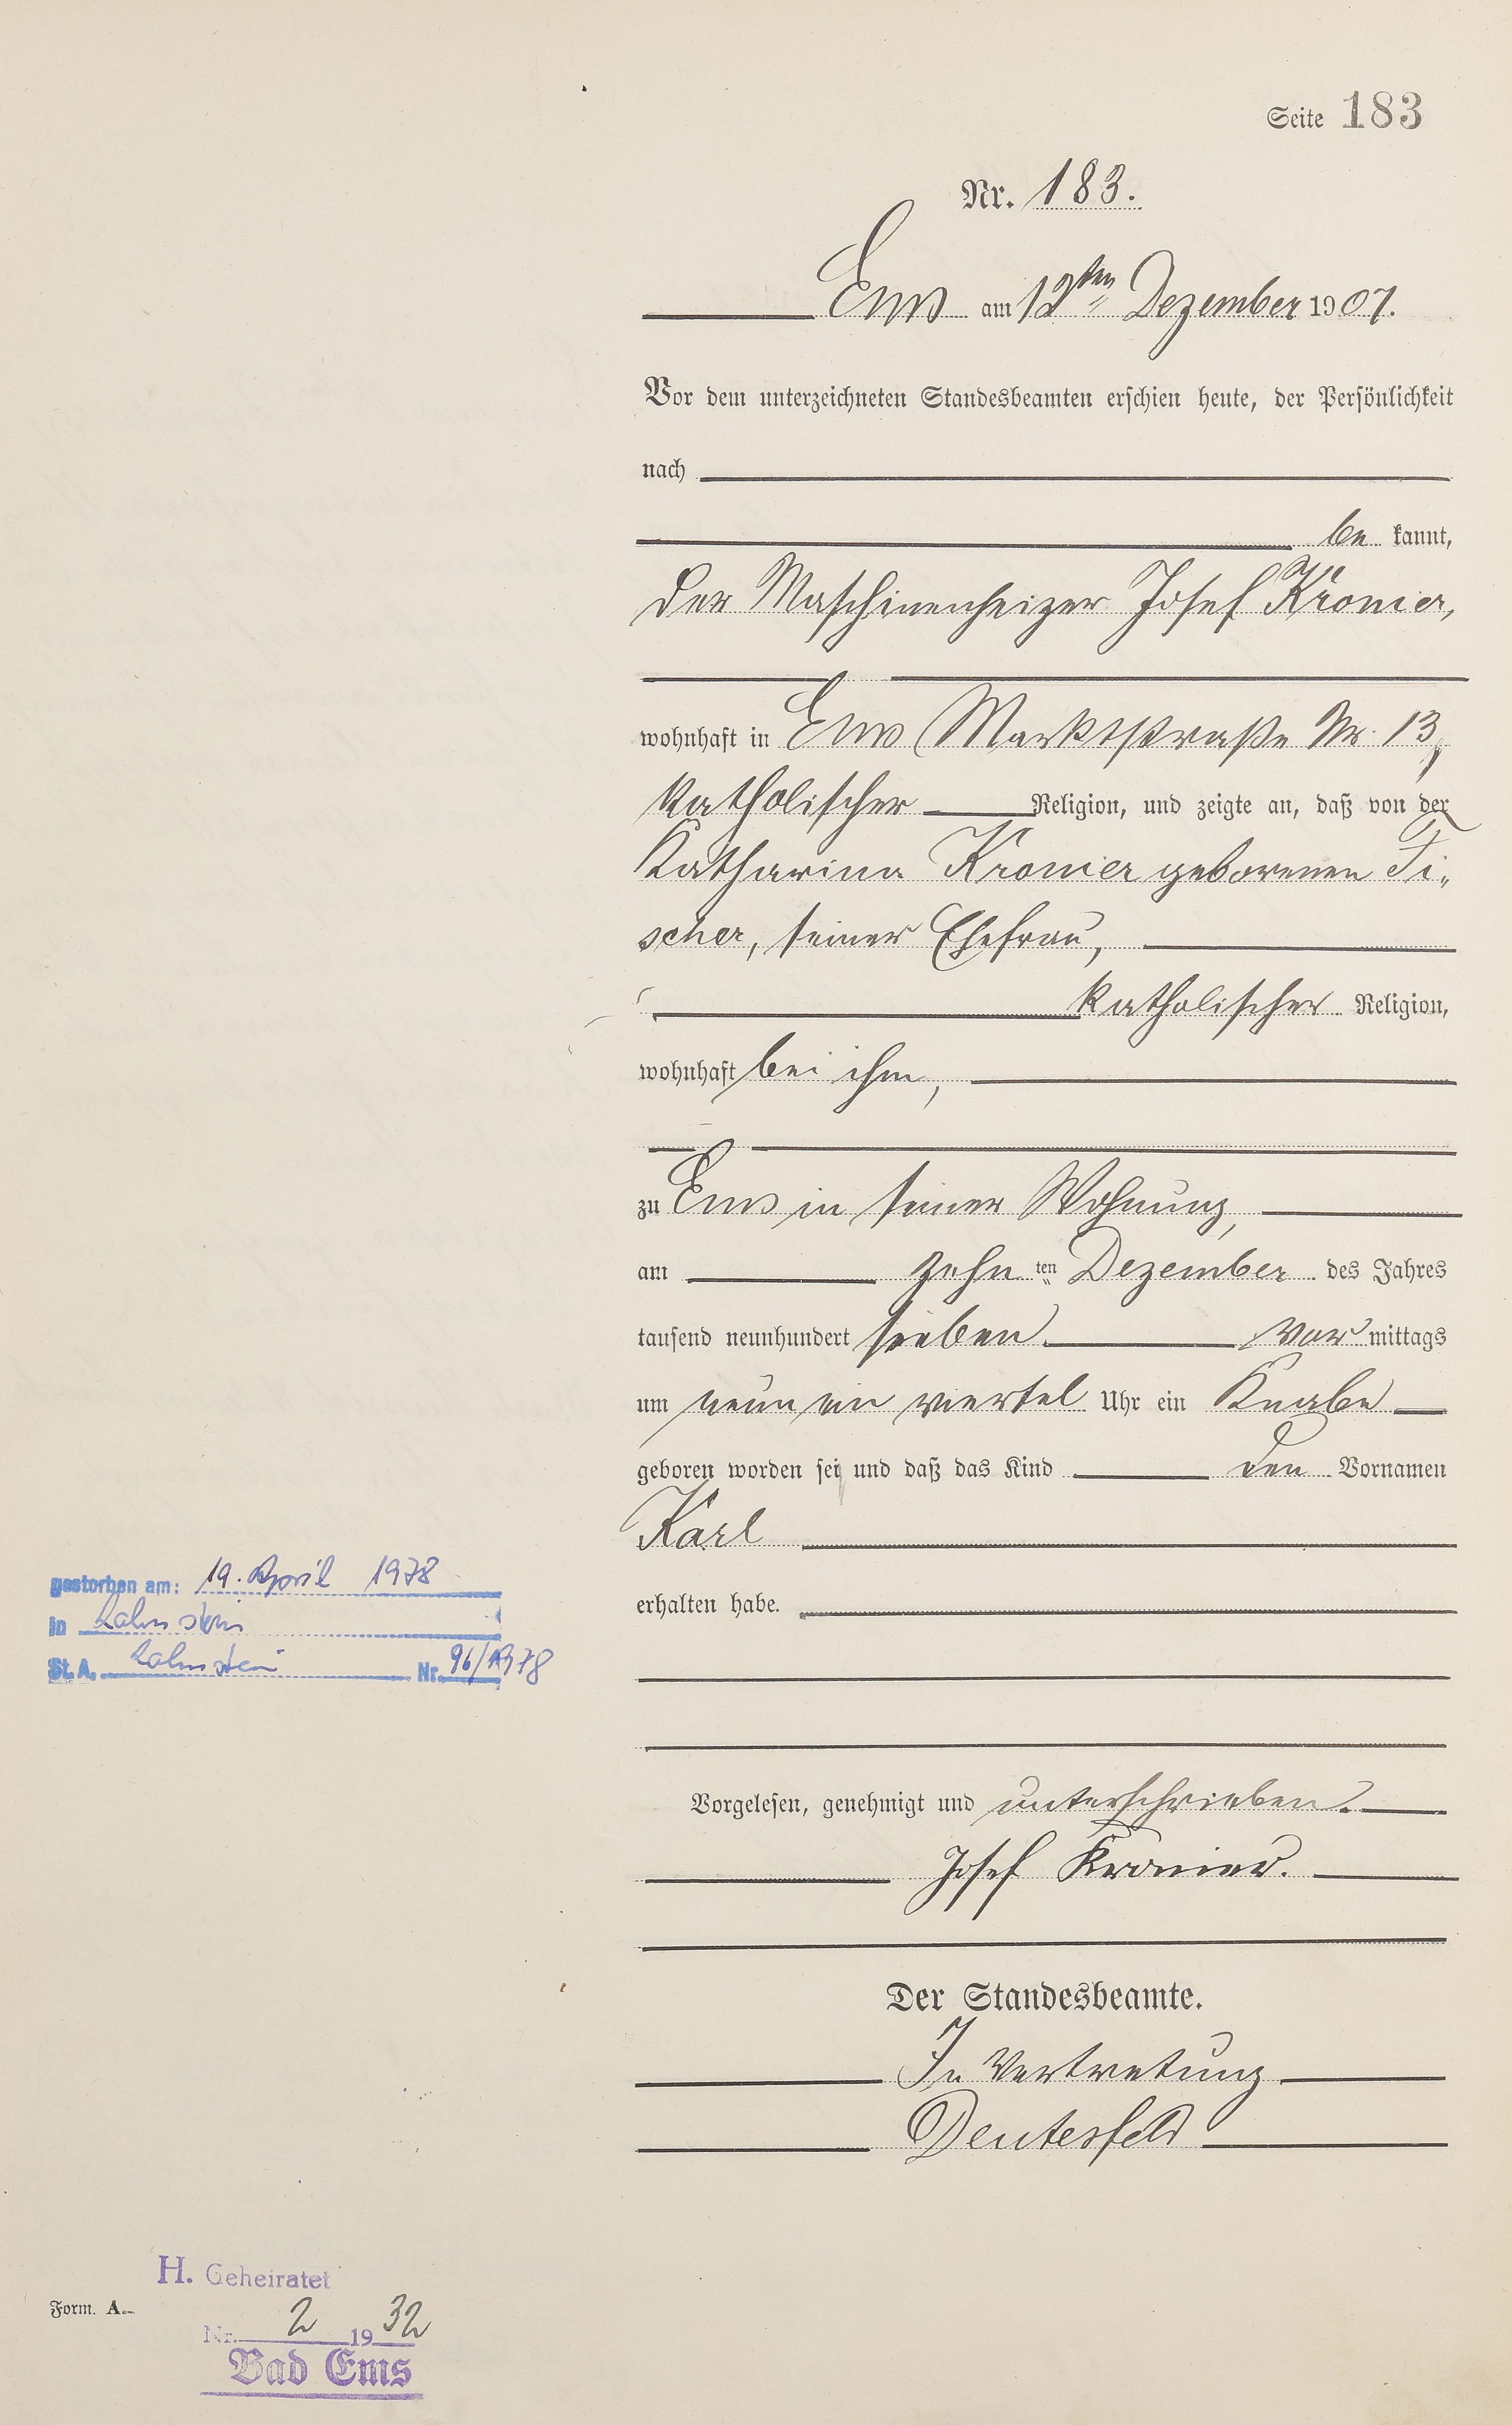 Seite 183
Nr. 183.
Ems am 12ten Dezember 1907.
Vor dem unterzeichneten Standesbeamten erschien heute, der Persönlichkeit
nach
be kannt,
der Maschinenheizer Josef Kronier,
wohnhaft in Ems Marktstraße Nr. 13,
katholischer Religion, und zeigte an, daß von der
Katharina Kronier geborenen Fi-
scher, seiner Ehefrau,
katholischer Religion,
wohnhaft bei ihm,
zu Ems in seiner Wohnung,
am zehn ten Dezember des Jahres
tausend neunhundert sieben vor mittags
um neun ein viertel Uhr ein Knabe
geboren worden sei und daß das Kind den Vornamen
Karl
erhalten habe.
Vorgelesen, genehmigt und unterschrieben.
Josef Kronier.
Der Standesbeamte.
In Vertretung
Deutesfeld
gestorben am: 19. April 1978
in Lahnstein
St. A. Lahnstein Nr. 96/1978
H. Geheiratet
Form. A.
Nr. 2 1932
Bad Ems